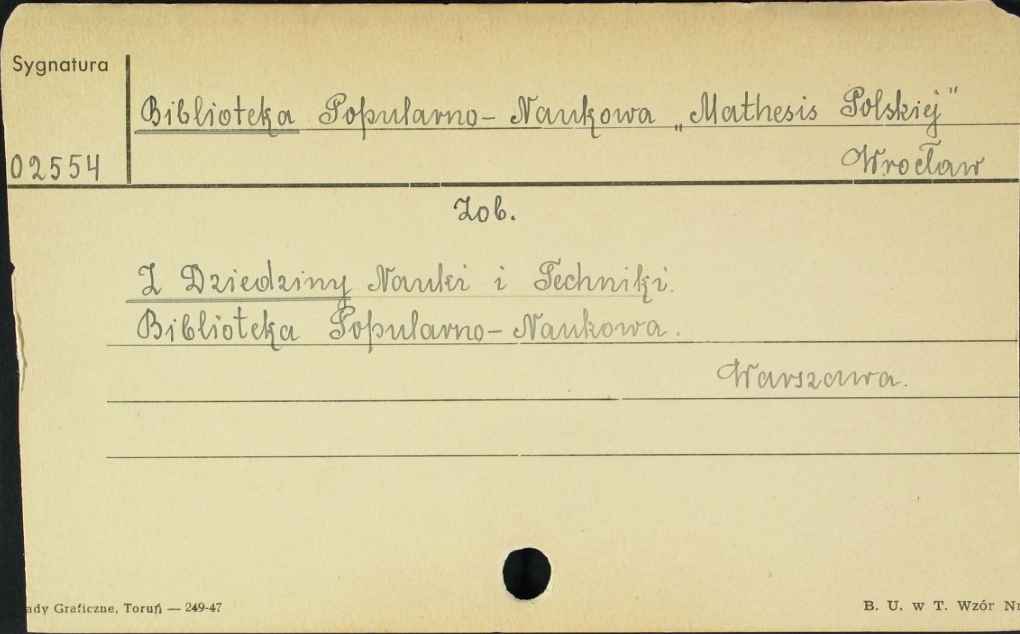 Sygnatura
Biblioteka Popularno-Naukowa „Mathesis Polskiej"
02554
Wrocław
Zob.
Z Dziedziny Nauki i Techniki.
Biblioteka Popularno-Naukowa.
Warszawa.
ady Graficzne, Toruń — 249-47
B. U. w T. Wzór Nr